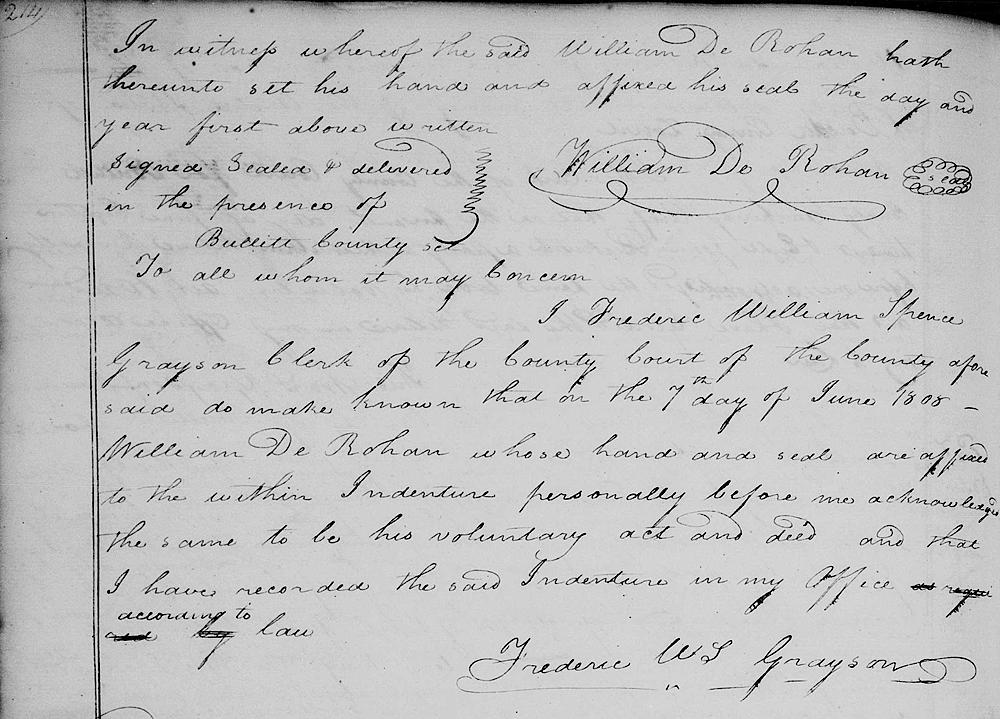 214
In witness whereof the said William De Rohan hath
thereunto set his hand and affixed his seal the day and
year first above written
Signed Sealed & delivered
in the presence of
William De Rohan seal
Bullitt County sct
To all whom it may Concern
I Frederic William Spence
Grayson Clerk of the County Court of the County afore
said do make known that on the 7th day of June 1808 –
William De Rohan whose hand and seal are affixed
to the within Indenture personally before me acknowledged
the same to be his voluntary act and deed and that
I have recorded the said Indenture in my Office as requi
according to
and by law
Frederic W S Grayson